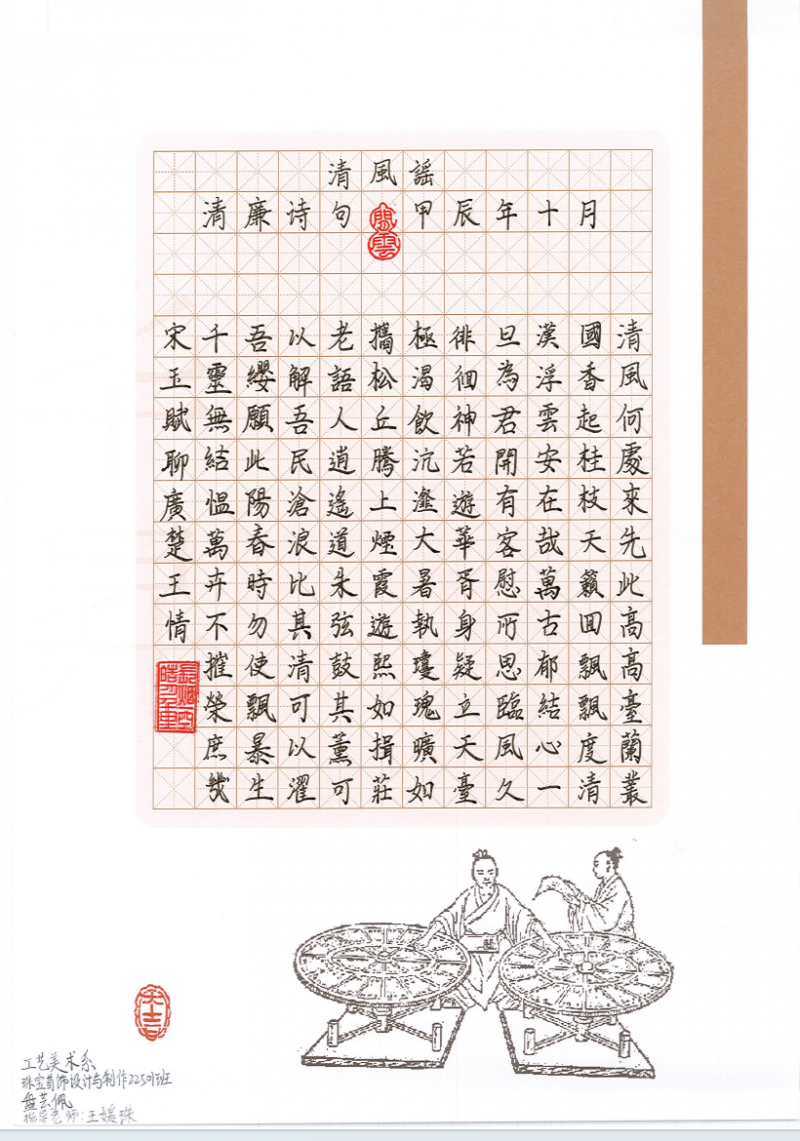 清風謠
清廉诗句 甲辰年十月
清風何處來先此高高臺蘭叢
國香起桂枝天籟回飄飄度清
漢浮雲安在哉萬古郁結心一
旦為君開有客慰所思臨風久
徘徊神若遊華胥身疑立天臺
極渴飲沆瀣大暑執瓊瑰曠如
攜松丘騰上煙霞遊熙如揖莊
老語人逍遙道朱弦鼓其薰可
以解吾民滄浪比其清可以濯
吾纓願此陽春時勿使飄暴生
千靈無結愠萬卉不摧榮庶幾
宋玉賦聊廣楚王情
工艺美术系
珠宝首饰设计与制作22501班
盘芸佩
指导老师:王媛珠